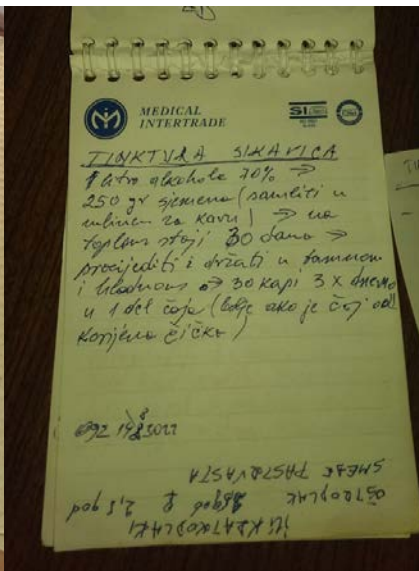 MEDICAL
INTERTRADE
TINKTURA SIKAVICA
1 litra alkohola 70% →
250 gr sjemena (samliti u
mlincu za kavu) → na
toplom stoji 30 dana →
procijediti i držati u tamnom
i hladnom → 30 kapi 3 x dnevno
u 1 del čaja (bolje ako je čaj od
korijena čička)
ILI KRATKODLAKI
OŠTRODLAK god ♀ 2,5 god
SMEĐE PASTRVASTA